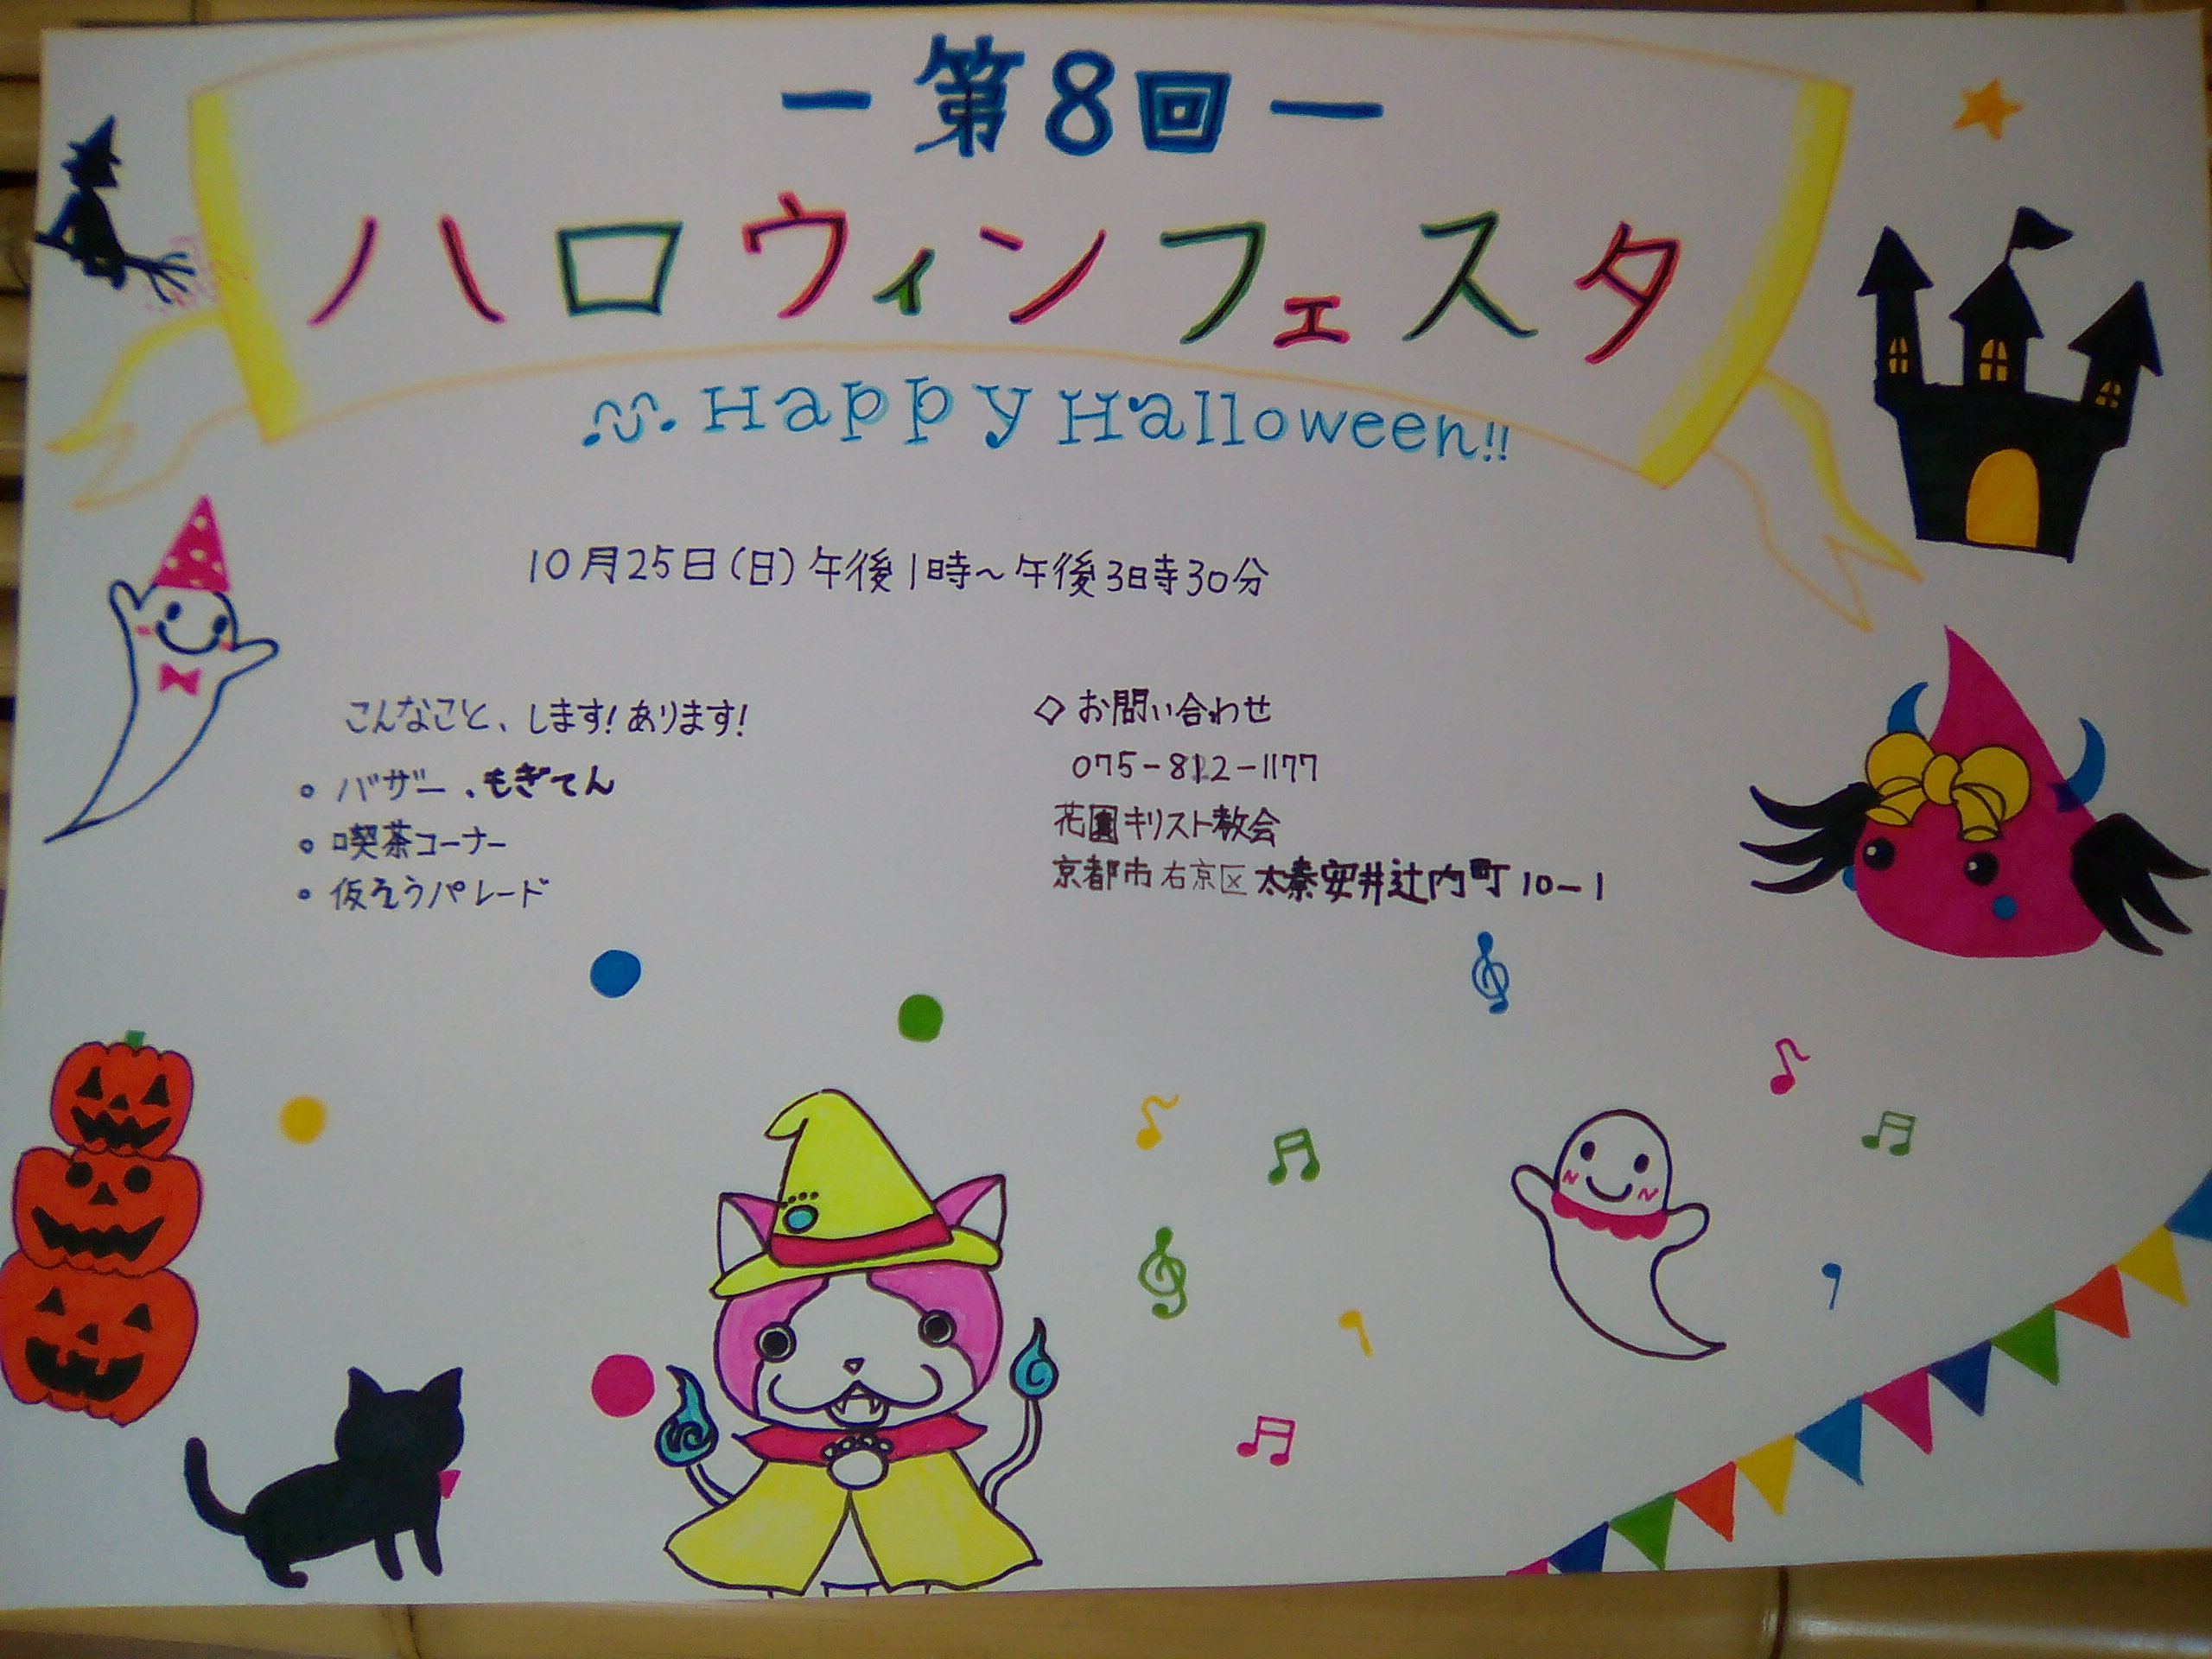 ー第8回ー
ハロウィンフェスタ
Happy Halloween!!
10月25日(日)午後1時～午後3時30分
こんなこと、します!あります!
○ バザー、もぎてん
○ 喫茶コーナー
○ 仮そうパレード
◇お問い合わせ
075-812-1177
花園キリスト教会
京都市右京区太秦安井辻内町10-1